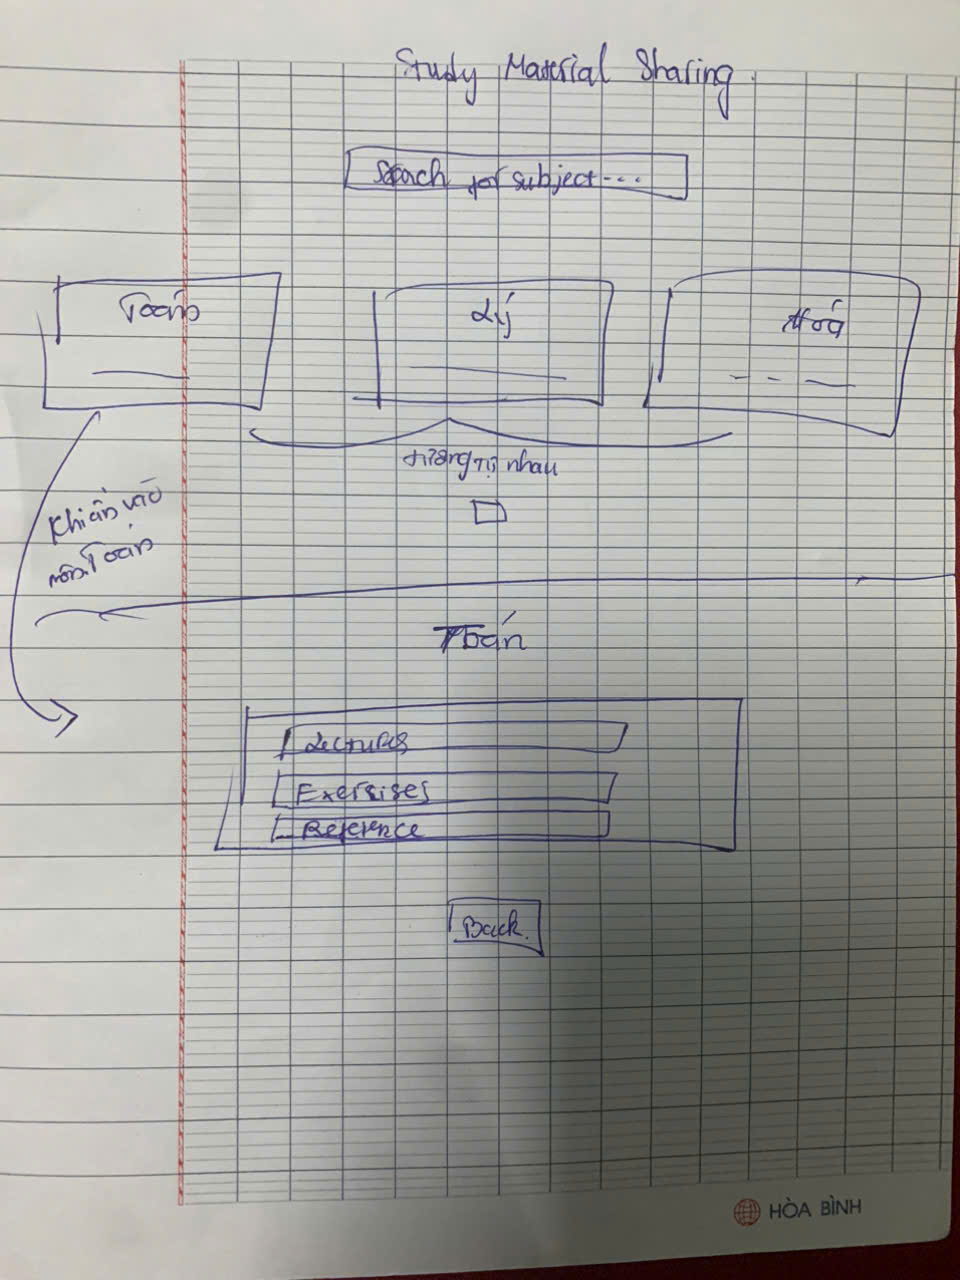 Study Material Sharing
Search for subject...
Toán
Lý
Hoá
tương tự nhau
Khi ấn vào
môn Toán
Toán
Lectures
Exersises
Reference
Back
HÒA BÌNH